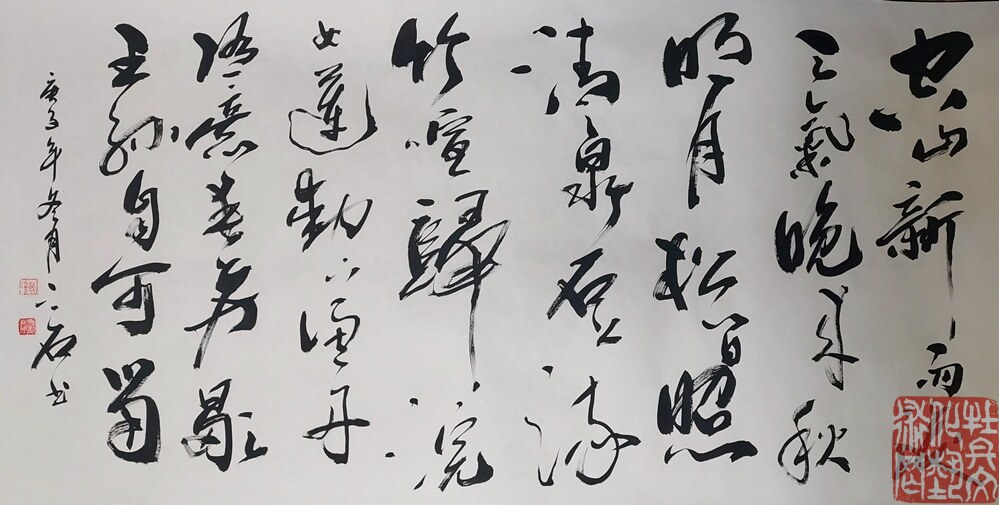 空山新雨後
天氣晚来秋
明月松間照
清泉石上流
竹喧歸浣
女蓮動下漁舟
隨意春芳歇
王孫自可留
庚子年冬月石书
杜兵文化藝術館